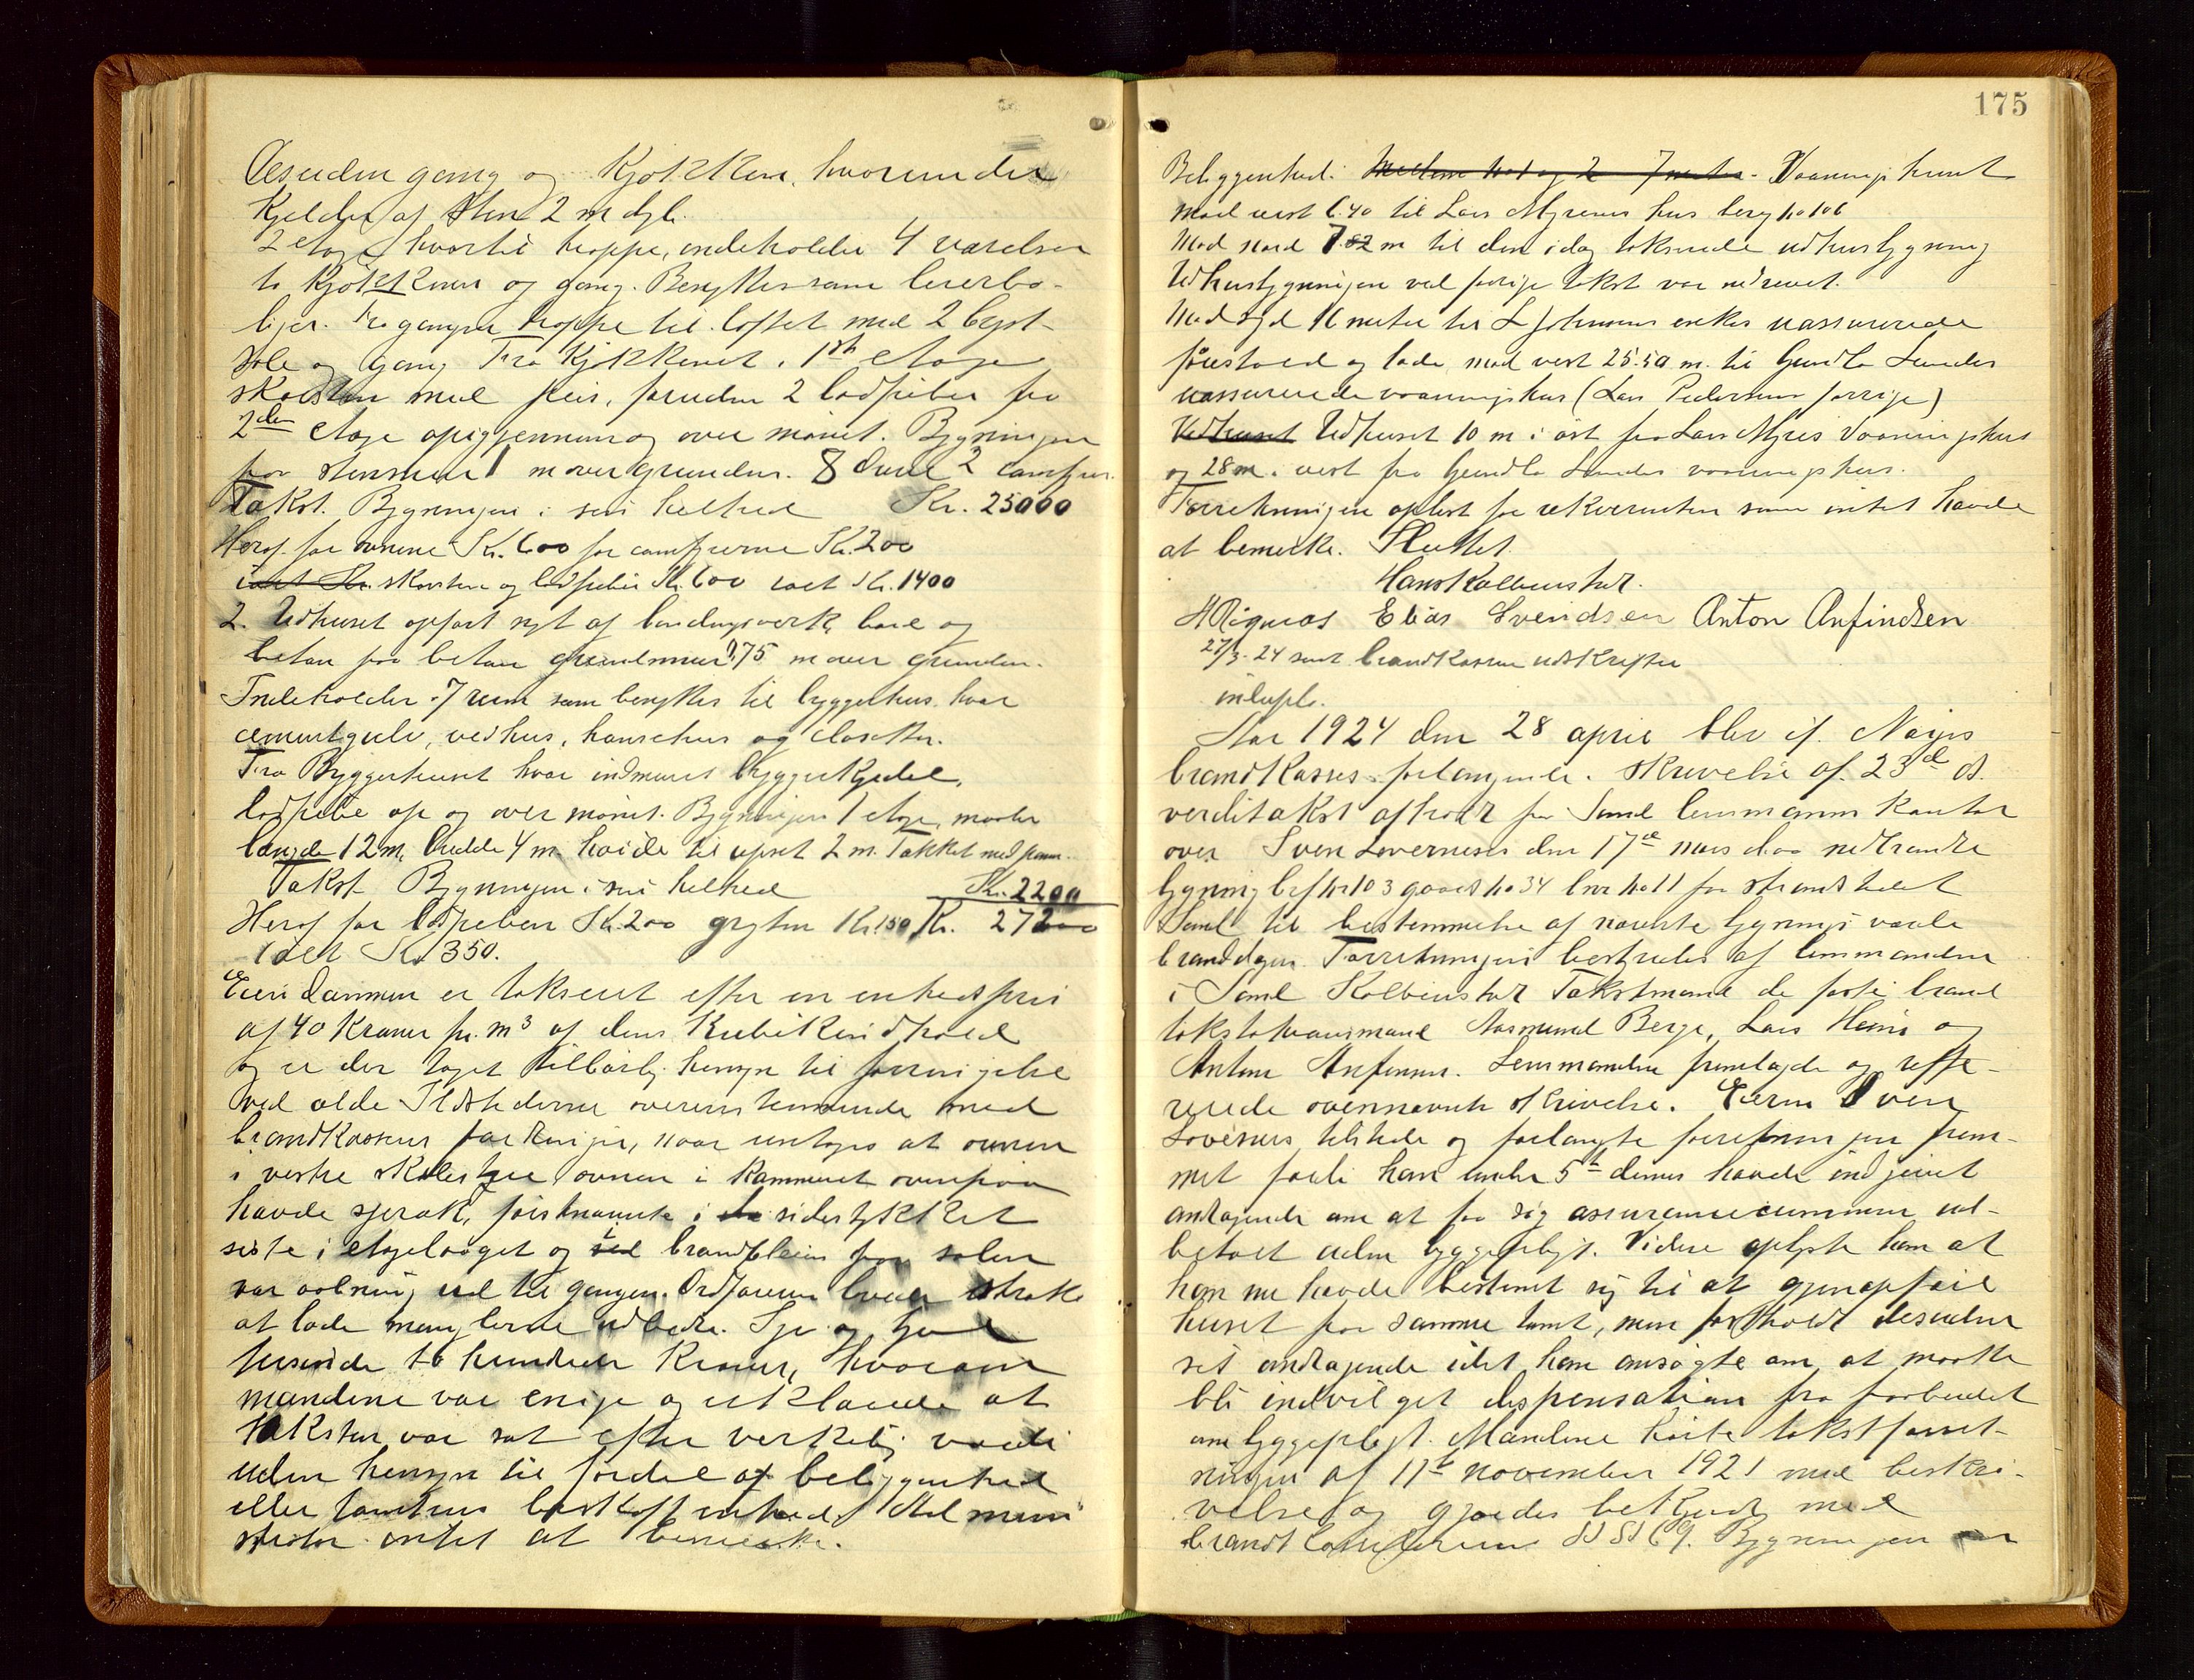 Desuden gang og Kjøkken, hvorunder
Kjelder af sten 2 m dyb.
2 etage hvortil trappe, indeholder 4 værelser
to kjøkkener og gang. Benyttes som leierbo-
liger. Fra gangen trappe til loftet med 2 kvist-
sale og gang Fra Kjøkkenet i 1st etage
skorsten med peis, foruden 2 lodpiber fra
2den etage opigjennem og over mønet. Bygningen
paa stenmur 1 m over grunden. 8 ovne 2 comfyrer
Takst. Bygningen i sin helhed Kr. 25000
Heraf for ovnene Kr. 600 for comfyrerne Kr. 200
skorsten og lodpiber Kr. 600 ialt Kr. 1400
2. Udhuset opført nyt af bindingsverk, bord og
betan paa betan grundmur 1.75 m over grunden.
Indeholder 7 rum som benyttes til bryggerhus hvor
cementgulv, vedhus, hønsehus og closetter.
Fra Bryggerhuset hvor indmuret bryggerkjedel,
lodpibe op og over mønet. Bygningen 1 etage, maaler
længde 12 m, bredde 4 m. høide til opset 2 m. Tækket med panner.
Takst Bygningen i sin helhed Kr. 2200
Heraf for lodpiben Kr. 200 gryten Kr. 150 Kr. 27200
ialt Kr. 350.
Eiendommen er takseret efter en enhedspris
af 40 Kroner pr. m³ af dens Kubikindhold
og er der taget tilbørlig hensyn til forringelse
ved ælde Ildstederne overensstemmende med
brandkassens forskrifter, naar undtages at ovnen
i vestre
havde spræk, førstnævnte i sidestykket
siste i etagelaaget og brand
var aabning ud til gangen. Ordføreren lovede straks
at lade manglerne udbedre. Syv og tyve
tusinde to hundrede Kroner, hvorom
mændene var enige og erklærede at
taksten var sat efter verkelig værdi
uden hensyn til fordel af beliggenhed
eller tomtens beskaffenhed. Admini
strator intet at bemerke.
175
Beliggenhed. Mellem no 1 og 2 7 meter. Vaaningshuset
mod øst 6.40 til Lars Myrenes hus berg no 106
Mod nord 7.82 m til den idag takserede udhusbygning
Udhusbygningen ved forrige takst var nedrevet.
Mod syd 16 meter til L Johnsens enkes uassurerede
fjøs og lade, mod vest 25.50 m. til Gundla Lundes
uassurerede vaaningshus (Lars Pedersens forrige)
Vedhuset Udhuset 10 m i øst fra Lars Myres Vaaningshus
og 28 m. vest fra Gundla Lundes vaaningshus.
Forretningen oplest for rekvirenten som intet havde
at bemerke. Sluttet.
Hans Kolbenstvedt.
Elias Svendsen Anton Anfindsen
27/3-24 sendt brandkassen udskrifter
in duplo.
Aar 1924 den 28 april blev if. Norges
brandkasses forlangende i skrivelse af 23de ds.
verditakst afholdt for Sand lensmanns kontor
over Sven Loverneses den 17de mars d.aa nedbrændte
bygning brf no 103 gaard no 34 brno 11 for strandstedet
Sand til bestemmelse af nævnte bygnings værdi
branddagen. Forretningen bestyredes af lensmanden
i Sand Kolbenstvedt Takstmænd de faste brand
takstmænd Aasmund Berge, Lars Heiris og
Anton Anfinsen. Lensmanden fremlagde og reffe-
rerede ovennævnte skrivelse. Eieren Sven
Lovernes tilstede og forlangte forretningen frem-
met fordi han under 5te dennes havde indgivet
andragende om at faa sig assurancesummen ud-
betalt uden byggepligt. Videre oplyste han at
han nu havde bestemt sig til at gjenopføre
huset paa samme tomt, men forholdt desuden
sit andragende idet han ansøgte om at maatte
bli indvilget dispensation fra forbudet
om byggepligt. Mændene hørte takstforret-
ningen af 11te november 1921 med beskri-
velse og gjordes bekjendt med
brandt Bygningen var